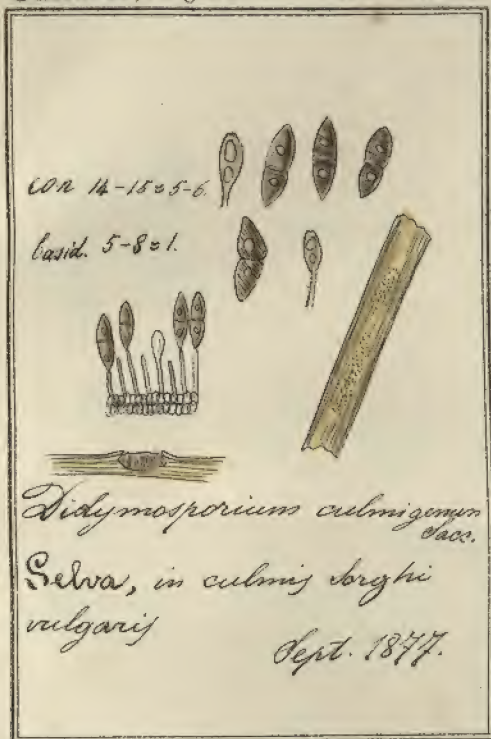 con 14-15=5-6.
basid. 5-8=1.
Didymosporium culmigenum
Sacc.
Selva, in culmis Sorghi
vulgaris
Sept. 1877.